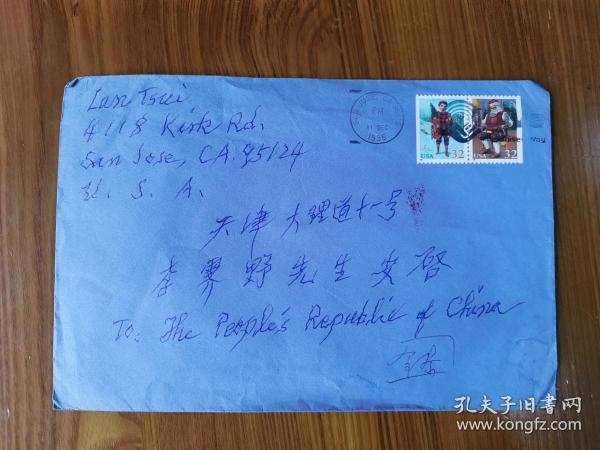 Lan Tsui
4118 Kirk Rd.
San Jose, CA. 95124
U. S. A.
PM
11 DEC
1995
USA 32
USA 32
天津大理道十一号
李霁野先生安启
To: The People's Republic of China
孔夫子旧书网
www.kongfz.com